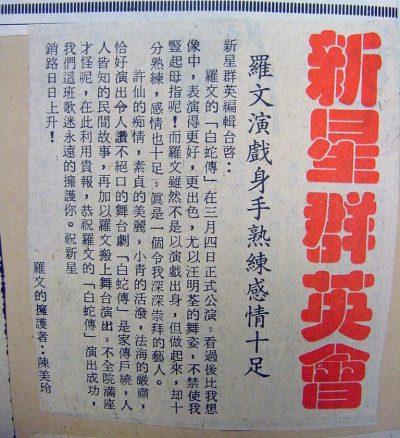 新星群英會
羅文演戲身手熟練感情十足
新星群英編輯台啓：
羅文的「白蛇傳」在三月四日正式公演。看過後比我想
像中，表演得更好，更出色，尤以汪明荃的舞姿，不禁使我
豎起母指呢！而羅文雖然不是以演戲出身，但做起來，却十
分熟練，感情也十足。眞是一個令我深深崇拜的藝人。
許仙的痴情，素貞的美麗，小青的活潑，法海的嚴肅，
恰好演出令人讚不絕口的舞台劇「白蛇傳」是家傳戶曉，人
人皆知的民間故事，再加以羅文搬上舞台演出。不全院滿座
才怪呢，在此利用貴報，恭祝羅文的「白蛇傳」演出成功，
我們這班歌迷永遠的擁護你。祝新星
銷路日日上升！
羅文的擁護者：陳美玲